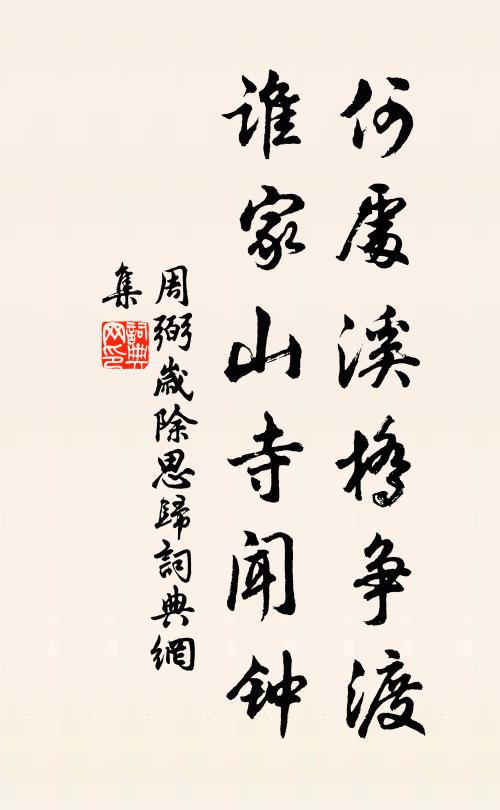 何處溪橋争渡
誰家山寺聞钟
周弼歲除思歸詞典網
集
詞典网印